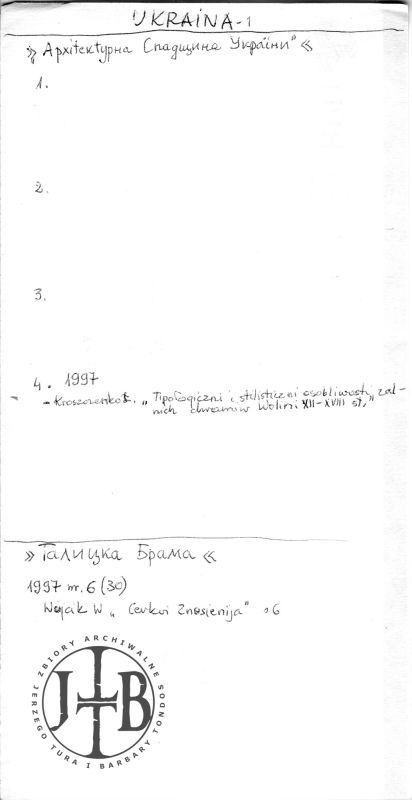 UKRAINA-1
» Архітектурна Спадщина України" «
1.
2.
3.
4. 1997
- Kroszczenko Ł. „Tipołogiczni i stilisticzni osobliwosti zal-
nich chramiw Wolini XII-XVIII st."
» Галицка Брама «
1997 nr. 6 (30)
Wujak W „ Cerkvi Znesienija" s6
ZBIORY ARCHIWALNE
JERZEGO TURA I BARBARY TONDOS
JT
TB